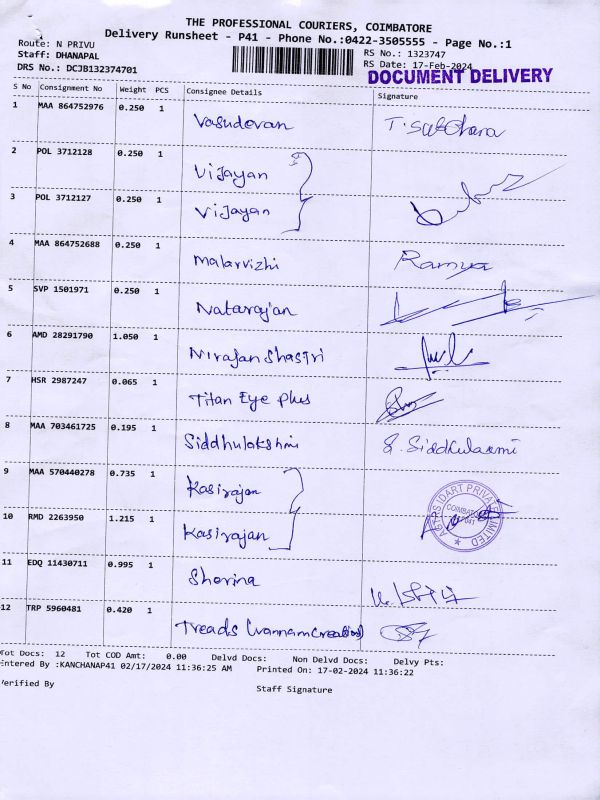 THE PROFESSIONAL COURIERS, COIMBATORE
Delivery Runsheet - P41 - Phone No.:0422-3505555 - Page No.:1
Route: N PRIVU
RS No.: 1323747
Staff: DHANAPAL
RS Date: 17-Feb-2024
DRS No.: DCJB132374701
DOCUMENT DELIVERY
S No Consignment No Weight PCS Consignee Details Signature
1 MAA 864752976 0.250 1 Vasudevan
2 POL 3712128 0.250 1 Vijayan
3 POL 3712127 0.250 1 Vijayan
4 MAA 864752688 0.250 1 Malarvizhi Ramya
5 SVP 1501971 0.250 1 Natarajan
6 AMD 28291790 1.050 1 Nirajan Shastri
7 HSR 2987247 0.065 1 Titan Eye plus
8 MAA 703461725 0.195 1 Siddhulakshmi S. Siddhulaxmi
9 MAA 570440278 0.735 1 Kasirajan
10 RMD 2263950 1.215 1 Kasirajan
COIMBATORE
641 041
PRIVATE LIMITED
11 EDQ 11430711 0.995 1 Sherina
12 TRP 5960481 0.420 1 Treads (vannam creations)
Tot Docs: 12 Tot COD Amt: 0.00 Delvd Docs: Non Delvd Docs: Delvy Pts:
Entered By :KANCHANAP41 02/17/2024 11:36:25 AM Printed On: 17-02-2024 11:36:22
Verified By Staff Signature